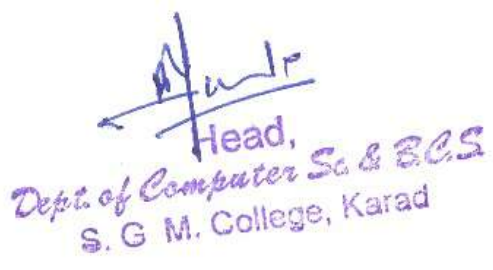 Head,
Dept. of Computer Sc. & B.C.S.
S. G M. College, Karad